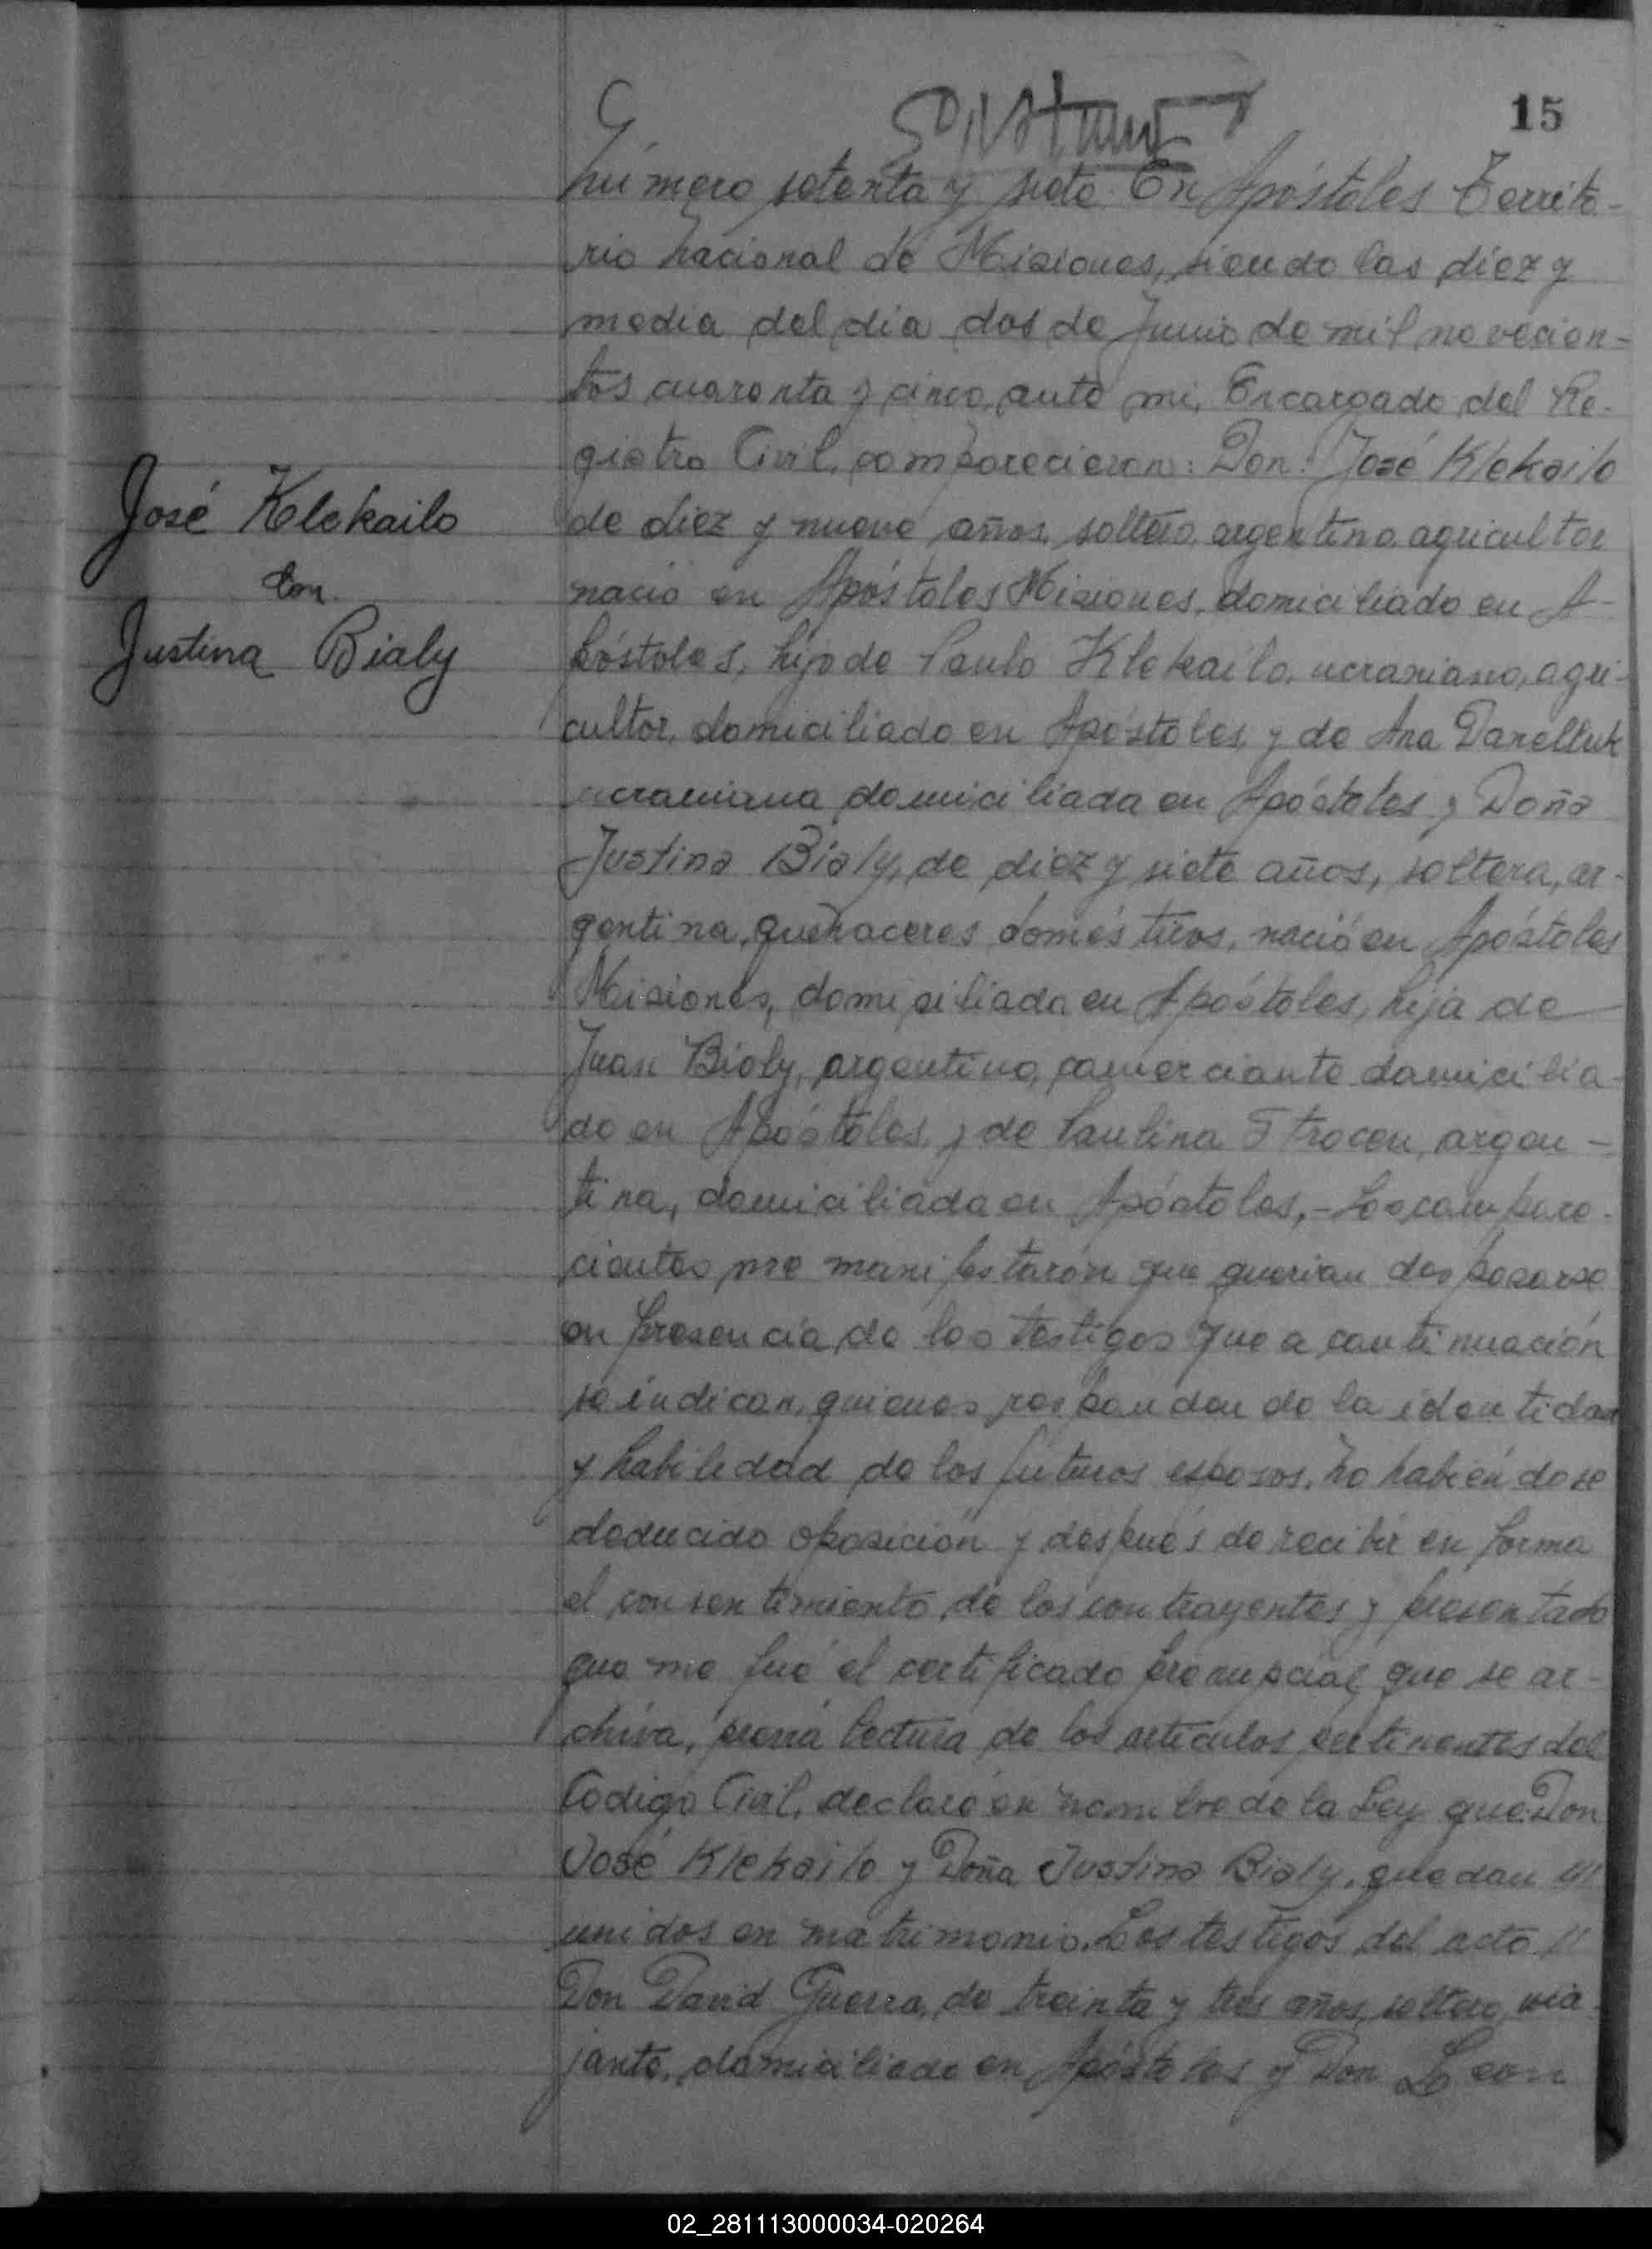 15
número setenta y siete. En Apóstoles Territo-
rio nacional de Misiones, siendo las diez y
media del dia dos de Junio de mil novecien-
tos cuarenta y cinco, ante mi, Encargado del Re-
gistro Civil, comparecieron: Don: José Klekailo
de diez y nueve años, soltero, argentino, agricultor
nació en Apóstoles Misiones, domiciliado en A-
póstoles, hijo de Paulo Klekailo, ucraniano, agri-
cultor, domiciliado en Apóstoles, y de Ana Danelluk
ucraniana domiciliada en Apóstoles y Doña
Justina Bialy, de diez y siete años, soltera, ar-
gentina, quehaceres domésticos, nació en Apóstoles
Misiones, domiciliada en Apóstoles, hija de
Juan Bialy, argentino, comerciante domicilia-
do en Apóstoles, y de Paulina Strocen, argen-
tina, domiciliada en Apóstoles,- Los compare-
cientes me manifestarón que querian desposarse
en presencia de los testigos que a continuación
se indican, quienes responden de la identidad
y habilidad de los futuros esposos, no habiéndose
deducido oposición y después de recibir en forma
el consentimiento de los contrayentes y presentado
que me fué el certificado prenupcial que se ar-
chiva, previa lectura de los articulos pertinentes del
Codigo Civil, declaro en nombre de la Ley que: Don
José Klekailo y Doña Justina Bialy, quedan
unidos en matrimonio. Los testigos del acto
Don David Guerra, de treinta y tres años, soltero, via-
jante, domiciliado en Apóstoles y Don Leon
José Klekailo
con
Justina Bialy
02_281113000034-020264